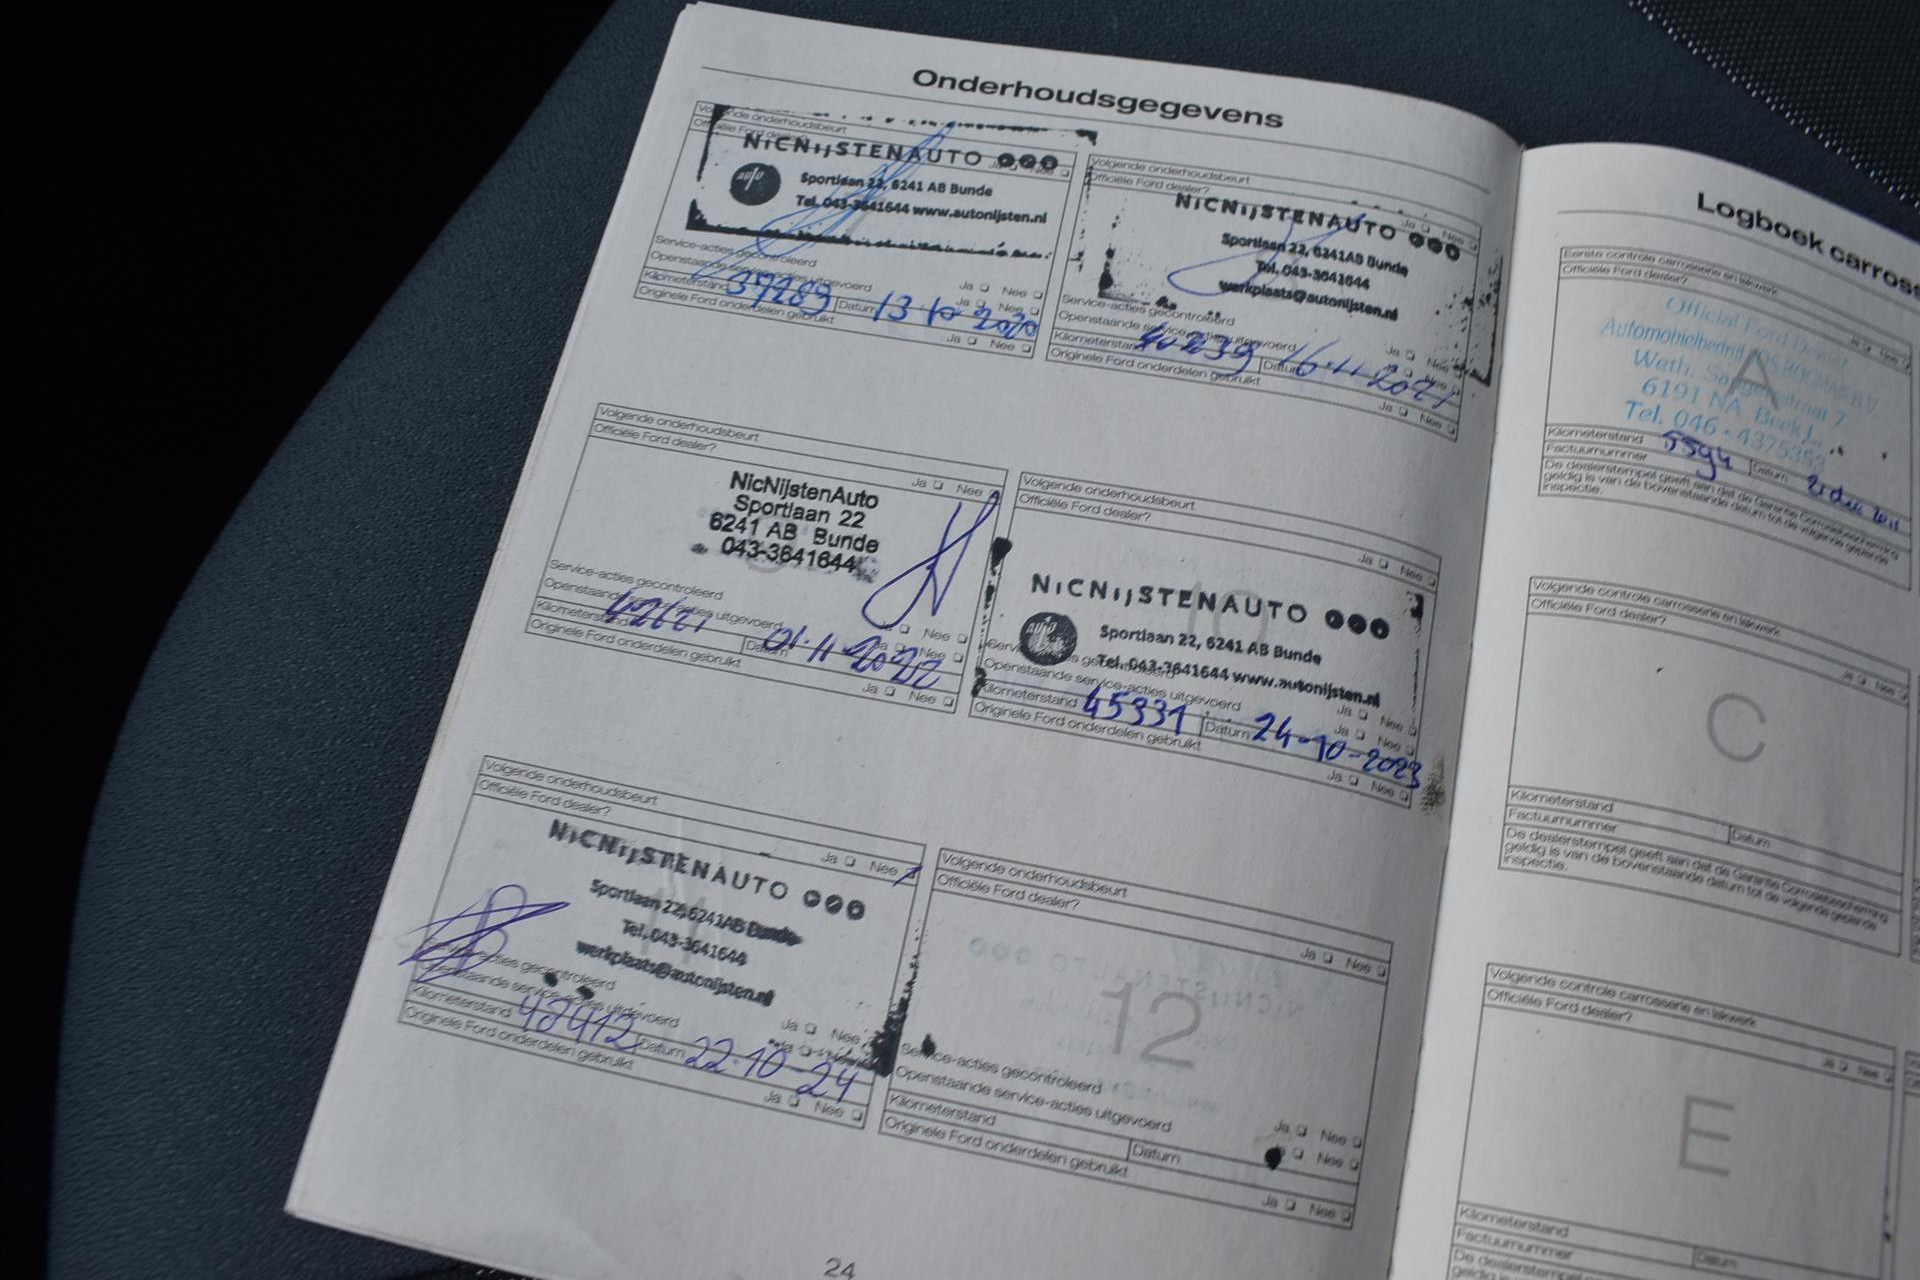 Onderhoudsgegevens
Volgende onderhoudsbeurt
Officiële Ford dealer?
NiCNijSTENAUTO
auto
Sportlaan 22, 6241 AB Bunde
Tel. 043-3641644 www.autonijsten.nl
Service-acties gecontroleerd
Ja Nee
Openstaande service-acties uitgevoerd
Ja Nee
Kilometerstand 39289 Datum 13 10 2020
Originele Ford onderdelen gebruikt
Ja Nee
Volgende onderhoudsbeurt
Officiële Ford dealer?
Ja Nee
NiCNijSTENAUTO
Sportlaan 22, 6241AB Bunde
Tel. 043-3641644
werkplaats@autonijsten.nl
Service-acties gecontroleerd
Ja Nee
Openstaande service-acties uitgevoerd
Ja Nee
Kilometerstand 40239 Datum 16-11-2021
Originele Ford onderdelen gebruikt
Ja Nee
Volgende onderhoudsbeurt
Officiële Ford dealer?
Ja Nee
NicNijstenAuto
Sportlaan 22
6241 AB Bunde
043-3641644
Service-acties gecontroleerd
Ja Nee
Openstaande service-acties uitgevoerd
Ja Nee
Kilometerstand 42621 Datum 01-11-2022
Originele Ford onderdelen gebruikt
Ja Nee
Volgende onderhoudsbeurt
Officiële Ford dealer?
Ja Nee
NiCNijSTENAUTO
auto
Sportlaan 22, 6241 AB Bunde
Tel. 043-3641644 www.autonijsten.nl
Service-acties gecontroleerd
Ja Nee
Openstaande service-acties uitgevoerd
Ja Nee
Kilometerstand 45331 Datum 24-10-2023
Originele Ford onderdelen gebruikt
Ja Nee
Volgende onderhoudsbeurt
Officiële Ford dealer?
Ja Nee
NiCNijSTENAUTO
Sportlaan 22, 6241AB Bunde
Tel. 043-3641644
werkplaats@autonijsten.nl
11
Service-acties gecontroleerd
Ja Nee
Openstaande service-acties uitgevoerd
Ja Nee
Kilometerstand 48912 Datum 22-10-24
Originele Ford onderdelen gebruikt
Ja Nee
Volgende onderhoudsbeurt
Officiële Ford dealer?
Ja Nee
12
Service-acties gecontroleerd
Ja Nee
Openstaande service-acties uitgevoerd
Ja Nee
Kilometerstand Datum
Originele Ford onderdelen gebruikt
Ja Nee
24
Logboek carross
Eerste controle carrosserie en lakwerk
Officiële Ford dealer?
Ja Nee
Official Ford Dealer
Automobielbedrijf B.V.
A
Weth. 7
6191 NA Beek L.
Tel. 046 - 4375353
Kilometerstand 5594
Factuurnummer Datum
De dealerstempel geeft aan dat de Garantie Corrosiebescherming
geldig is van de bovenstaande datum tot de volgende geplande
inspectie.
Volgende controle carrosserie en lakwerk
Officiële Ford dealer?
Ja Nee
C
Kilometerstand
Factuurnummer Datum
De dealerstempel geeft aan dat de Garantie Corrosiebescherming
geldig is van de bovenstaande datum tot de volgende geplande
inspectie.
Volgende controle carrosserie en lakwerk
Officiële Ford dealer?
Ja Nee
E
Kilometerstand
Factuurnummer Datum